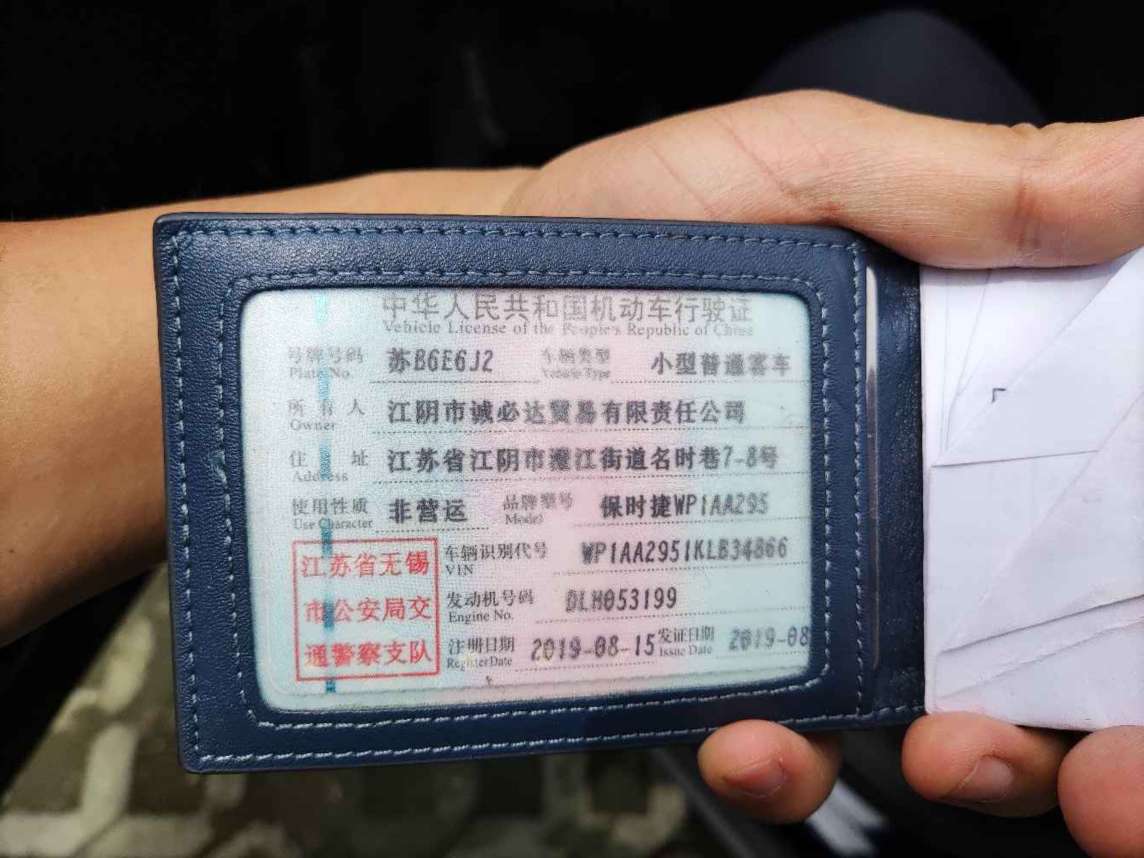 中华人民共和国机动车行驶证
Vehicle License of the People's Republic of China
号牌号码 苏B6E6J2 车辆类型 小型普通客车
Plate No. Vehicle Type
所有人 江阴市诚必达贸易有限责任公司
Owner
住址 江苏省江阴市澄江街道名时巷7-8号
Address
使用性质 非营运 品牌型号 保时捷WP1AA295
Use Character Model
江苏省无锡
市公安局交
通警察支队
车辆识别代号 WP1AA2951KLB34866
VIN
发动机号码 DLH053199
Engine No.
注册日期 2019-08-15 发证日期 2019-08
Register Date Issue Date